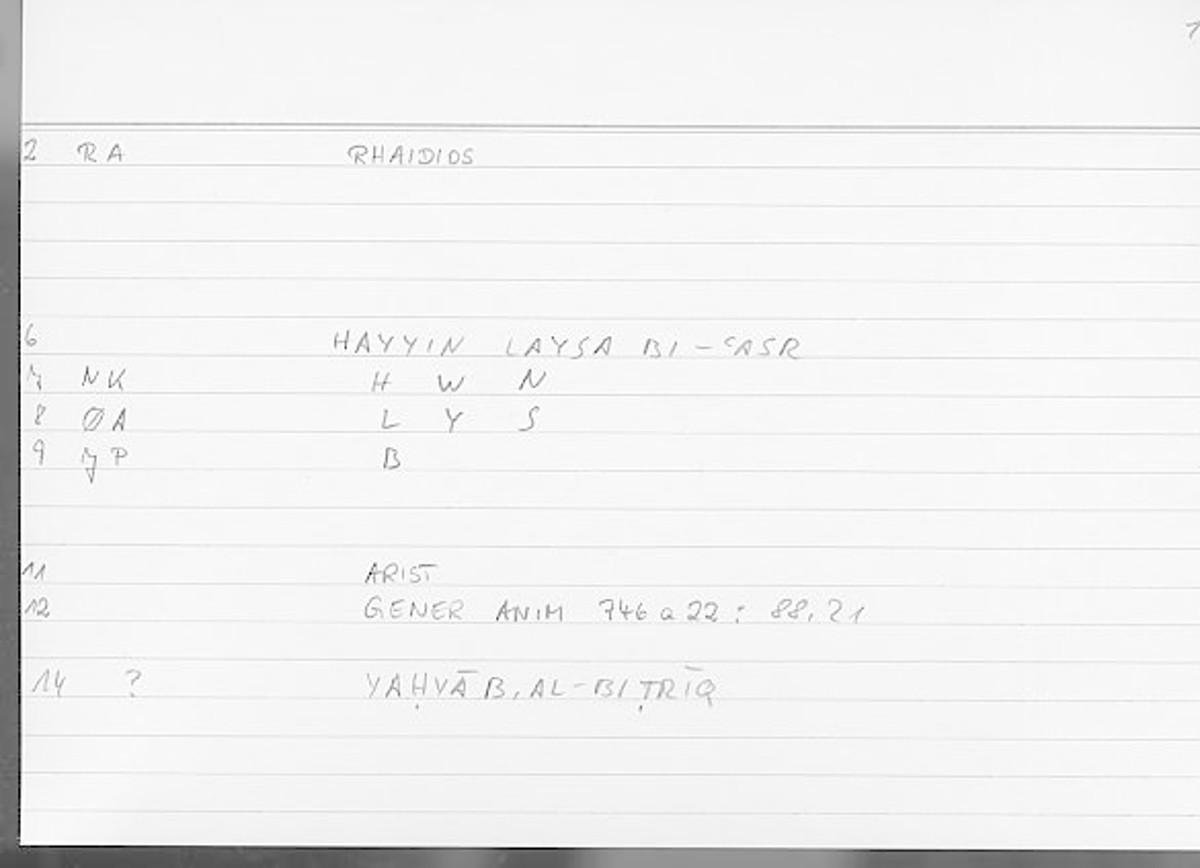 1
2 RA RHAIDIOS
6 HAYYIN LAYSA BI-ʿASR
7 NK H W N
8 ØA L Y S
9 P B
11 ARIST
12 GENER ANIM 746 a 22 : 88,21
14 ? YAḤYĀ B, AL-BIṬRĪQ